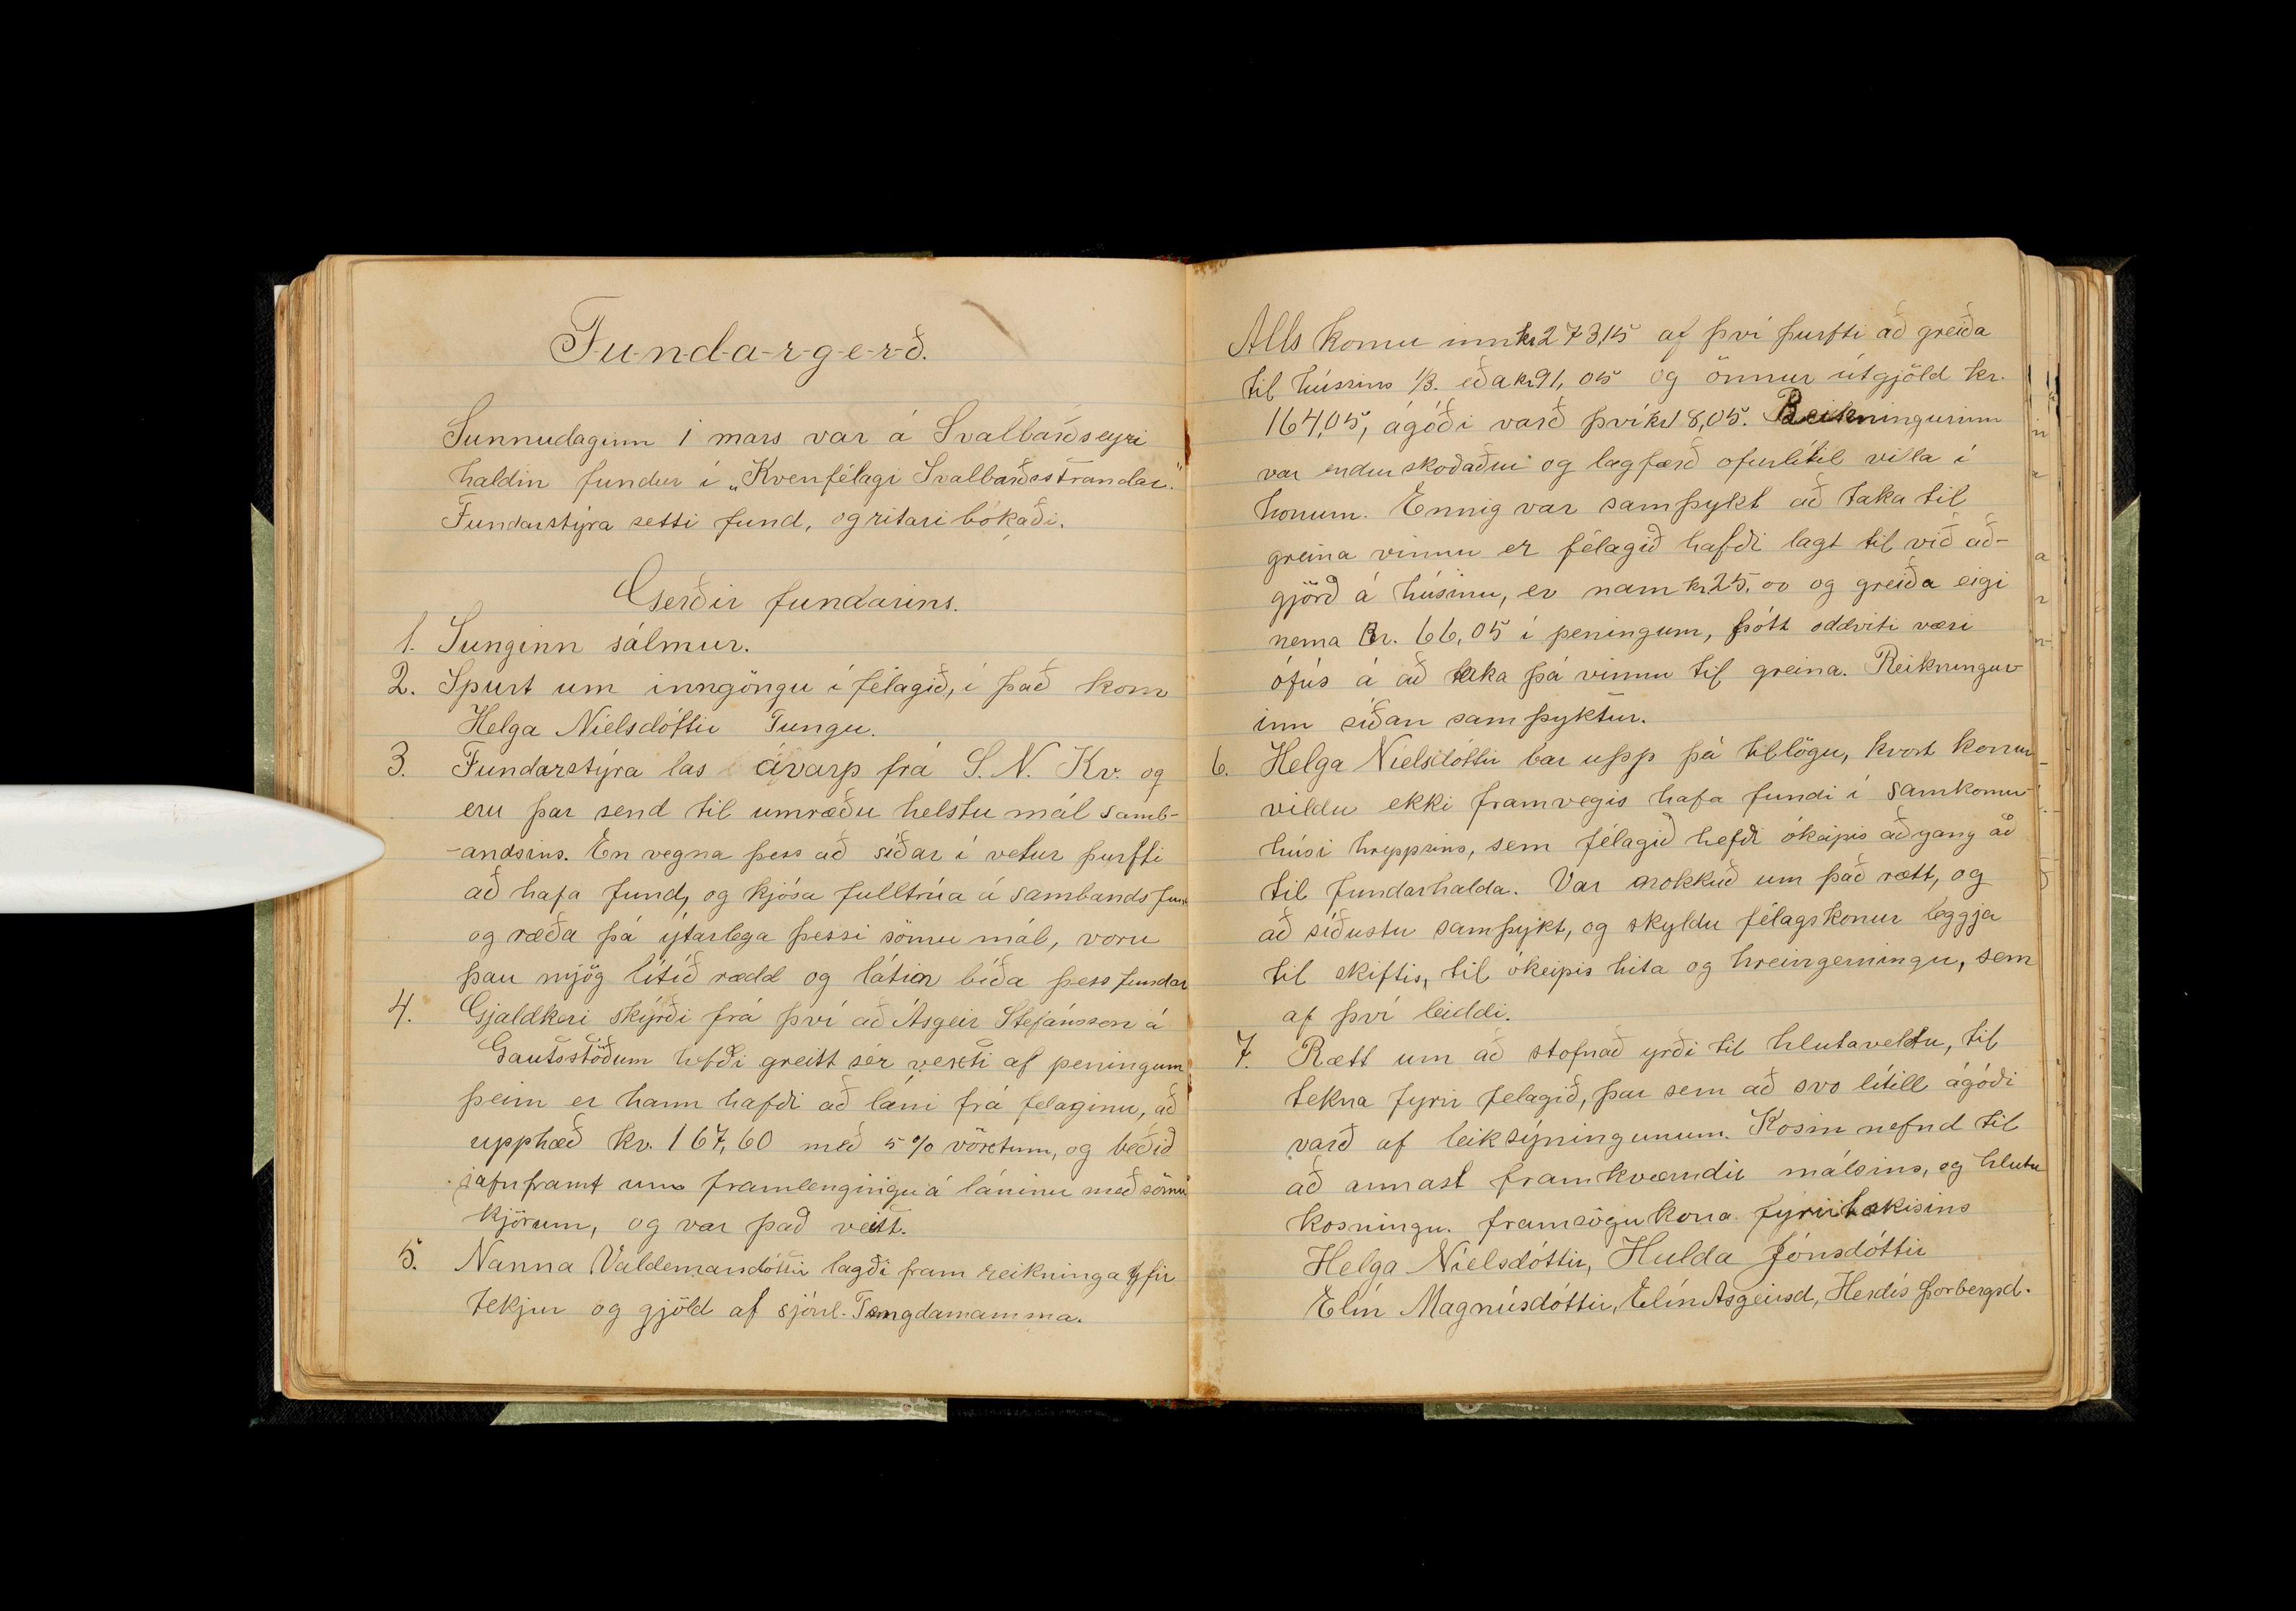 F-u-n-d-a-r-g-e-r-ð.
Sunnudaginn 1 mars var á Svalbarðseyri
haldin fundur í „Kvenfélagi Svalbarðsstrandar."
Fundarstýra setti fund, og ritari bókaði.
Gerðir fundarins.
1. Sunginn sálmur.
2. Spurt um inngöngu í félagið, í það kom
Helga Níelsdóttir Tungu.
3. Fundarstýra las ávarp frá S. N. Kv. og
eru þar send til umræðu helstu mál samb-
-andsins. En vegna þess að síðar í vetur þurfti
að hafa fund, og kjósa fulltrúa á sambandsfund
og ræða þá ýtarlega þessi sömu mál, voru
þau mjög lítið rædd og látin bíða þess fundar
4. Gjaldkeri skýrði frá því að Ásgeir Stefánsson á
Gautsstöðum hefði greitt sér vexti af peningum
þeim er hann hafði að láni frá félaginu, að
upphæð kr. 167,60 með 5% vöxtum, og beðið
jafnframt um framlengingu á láninu með sömu
kjörum, og var það veitt.
5. Nanna Valdemarsdóttir lagði fram reikninga yfir
tekjur og gjöld af sjónl. Tengdamamma.
Alls komu inn kr 273,15 af því þurfti að greiða
til hússins 1/3. eða kr 91,05 og önnur útgjöld kr.
164,05, ágóði varð því kr 18,05. Reikningurinn
var endurskoðaður og lagfærð ofurlítil villa í
honum. Ennig var samþykt að taka til
greina vinnu er félagið hafði lagt til við að-
gjörð á húsinu, er nam kr 25,00 og greiða eigi
nema kr. 66,05 í peningum, þótt oddviti væri
ófús á að taka þá vinnu til greina. Reikningur
inn síðan samþyktur.
6. Helga Níelsdóttir bar upp þá tillögu, hvort konur
vildu ekki framvegis hafa fundi í samkomu-
húsi hreppsins, sem félagið hefði ókeipis aðgang að
til fundarhalda. Var nokkuð um það rætt, og
að síðustu samþykt, og skyldu félagskonur leggja
til skiftis, til ókeipis hita og hreingerningu, sem
af því leiddi.
7. Rætt um að stofnað yrði til hlutaveltu, til
tekna fyrir felagið, þar sem að svo lítill ágóði
varð af leiksýningunum. Kosin nefnd til
að annast framkvæmdir málsins, og hlutu
kosningu. framsögukona
Helga Níelsdóttir, Hulda Jónsdóttir
Elín Magnúsdóttir, Elín Asgeirsd, Herdís Þorbergsd.